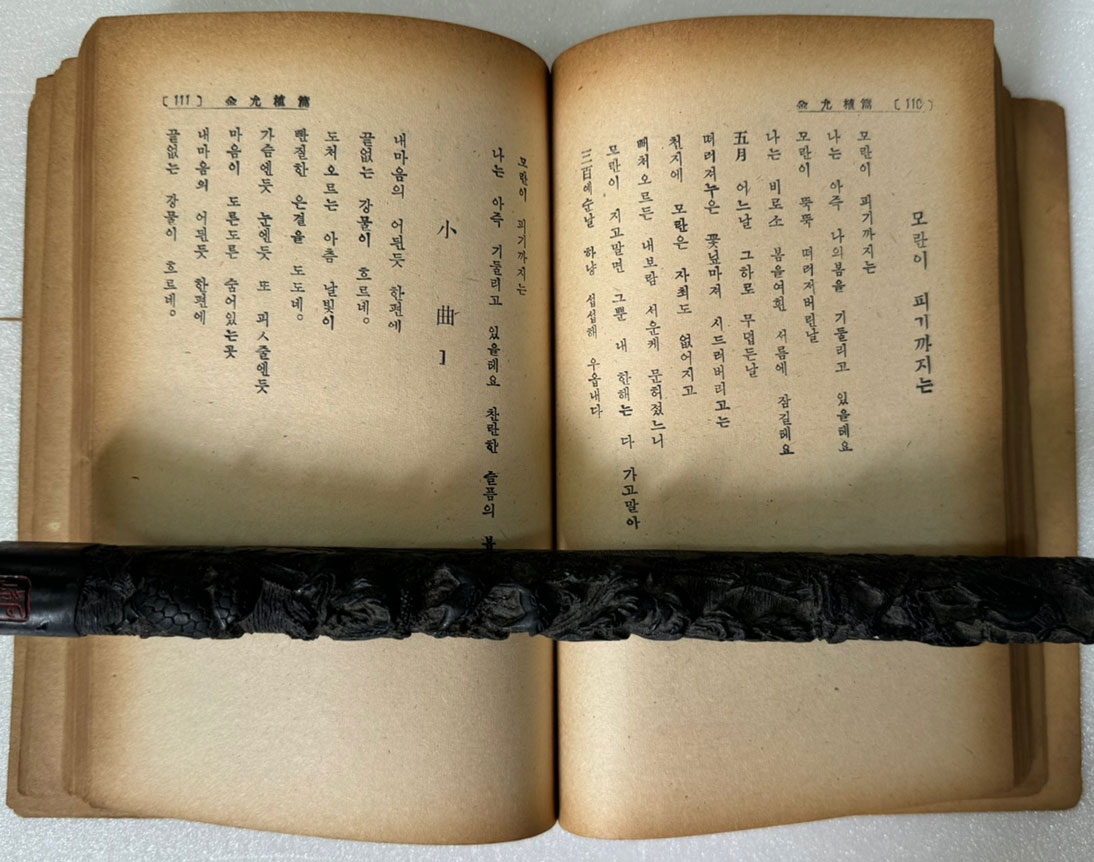 金允植篇 〔110〕
모란이 피기까지는
모란이 피기까지는
나는 아즉 나의봄을 기둘리고 있을테요
모란이 뚝뚝 떠러져버린날
나는 비로소 봄을여흰 서름에 잠길테요
五月 어느날 그하로 무덥든날
떠러져누은 꽃닢마져 시드러버리고는
천지에 모란은 자최도 없어지고
뻐처오르든 내보람 서운케 문허졌느니
모란이 지고말면 그뿐 내 한해는 다 가고말아
三百예순날 하냥 섭섭해 우옵내다
〔111〕 金允植篇
모란이 피기까지는
나는 아즉 기둘리고 있을테요 찬란한 슬픔의
小曲 1
내마음의 어뒨듯 한편에
끝없는 강물이 흐르네。
도처오르는 아츰 날빛이
빤질한 은결을 도도네。
가슴엔듯 눈엔듯 또 피ㅅ줄엔듯
마음이 도른도른 숨어있는곳
내마음의 어뒨듯 한편에
끝없는 강물이 흐르네。